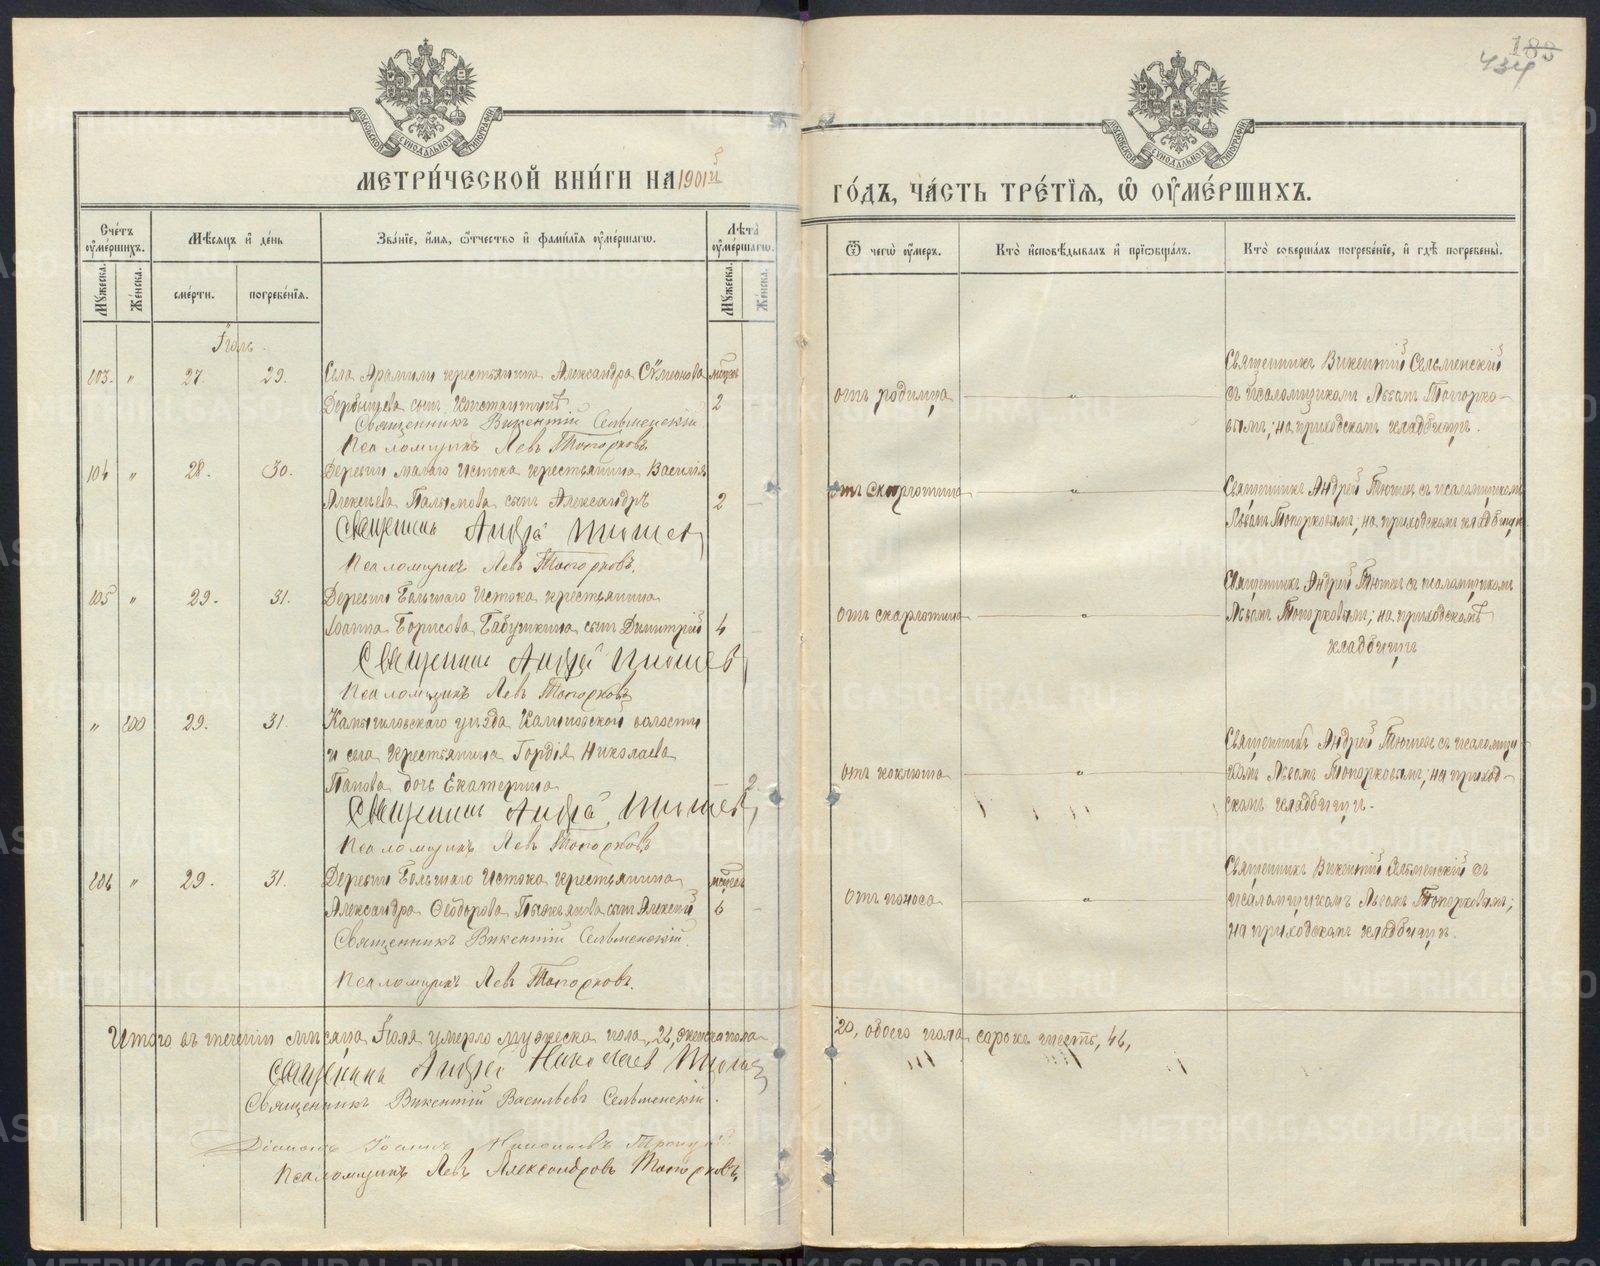 188
434
МОСКОВСКОЙ СѴНОДАЛЬНОЙ ТИПОГРАФІИ
МОСКОВСКОЙ СѴНОДАЛЬНОЙ ТИПОГРАФІИ
МЕТРИ́ЧЕСКОЙ КНИ́ГИ НА 1901й
ГО́ДЪ, ЧА́СТЬ ТРЕ́ТІЯ, Ѡ ОУМЕ́РШИХЪ.
Сче́тъ оумéршихъ.
Мѣсяцъ и де́нь
Зва́ніе, и́мя, ѻ́тчество и фами́лія оумéршагѡ.
Лѣта̀ оумéршагѡ.
Ѿ чегѡ̀ оу́меръ.
Кто̀ исповѣ́дывалъ и пріѡбща́лъ.
Кто̀ соверша́лъ погребе́ніе, и гдѣ̀ погребены̀.
Мꙋ́жеска.
Же́нска.
сме́рти.
погребе́нія.
Мꙋ́жеска.
Же́нска.
Іюль
103. " 27 29. Села Арамили крестьянина Александра Сѵмеонова мѣсяц
Дербышева сынъ Константинъ 2
Священникъ Викентій Сельменскій
Псаломщикъ Левъ Топорковъ
отъ родимца "
Священникъ Викентій Сельменскій
съ псаломщикомъ Львомъ Топорко-
вымъ; на приходскомъ кладбищѣ.
104 " 28. 30. Деревни Малаго Истока крестьянина Василія
Алексѣева сынъ Александръ 2 —
Священникъ Андрей Тюшев
Псаломщикъ Левъ Топорковъ.
отъ скарлатина "
Священникъ Андрей Тюшев съ псаломщикомъ
Львомъ Топорковымъ; на приходскомъ кладбищѣ
105 " 29. 31. Деревни Большаго Истока крестьянина
Іоанна Борисова Бабушкина сынъ Димитрій 4 —
Священникъ Андрей Тюшев
Псаломщикъ Левъ Топорковъ
отъ скарлатина "
Священникъ Андрей Тюшев съ псаломщикомъ
Львомъ Топорковымъ; на приходскомъ
кладбищѣ
" 100 29. 31. Камышловскаго уѣзда Калиновской волости
и села крестьянина Гордія Николаева
Панова дочь Екатерина — 2
Священникъ Андрей Тюшев
Псаломщикъ Левъ Топорковъ
отъ коклюша "
Священникъ Андрей Тюшев съ псаломщи-
комъ Львомъ Топорковымъ; на приход-
скомъ кладбищѣ.
106 " 29. 31. Деревни Большаго Истока крестьянина мѣсяц
Александра Ѳеодорова сынъ Алексій 6 —
Священникъ Викентій Сельменскій
Псаломщикъ Левъ Топорковъ.
отъ поноса "
Священникъ Викентій Сельменскій съ
псаломщикомъ Львомъ Топорковымъ;
на приходскомъ кладбищѣ.
Итого въ теченіи мѣсяца Іюля умерло мужеска пола, 26, женска пола
20, обоего пола сорокъ шесть, 46,
Священникъ Андрей Николаев Тюшев
Священникъ Викентій Васильевъ Сельменскій.
Діаконъ Іоаннъ Николаевъ Троицкій
Псаломщикъ Левъ Александровъ Топорковъ
METRIKI.GASO-URAL.RU